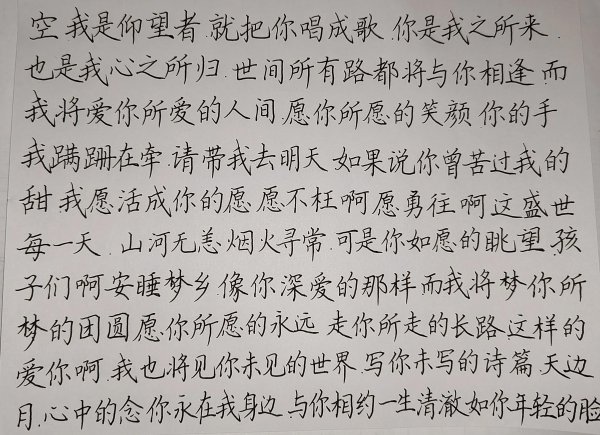 空.我是仰望者.就把你唱成歌.你是我之所来.
也是我心之所归.世间所有路都将与你相逢.而
我将爱你所爱的人间.愿你所愿的笑颜.你的手
我蹒跚在牵.请带我去明天.如果说你曾苦过我的
甜.我愿活成你的愿.愿不枉啊愿勇往.啊这盛世
每一天.山河无恙.烟火寻常.可是你如愿的眺望.孩
子们啊安睡梦乡.像你深爱的那样.而我将梦你所
梦的团圆.愿你所愿的永远.走你所走的长路.这样的
爱你啊.我也将见你未见的世界.写你未写的诗篇.天边
月.心中的念.你永在我身边.与你相约一生清澈.如你年轻的脸